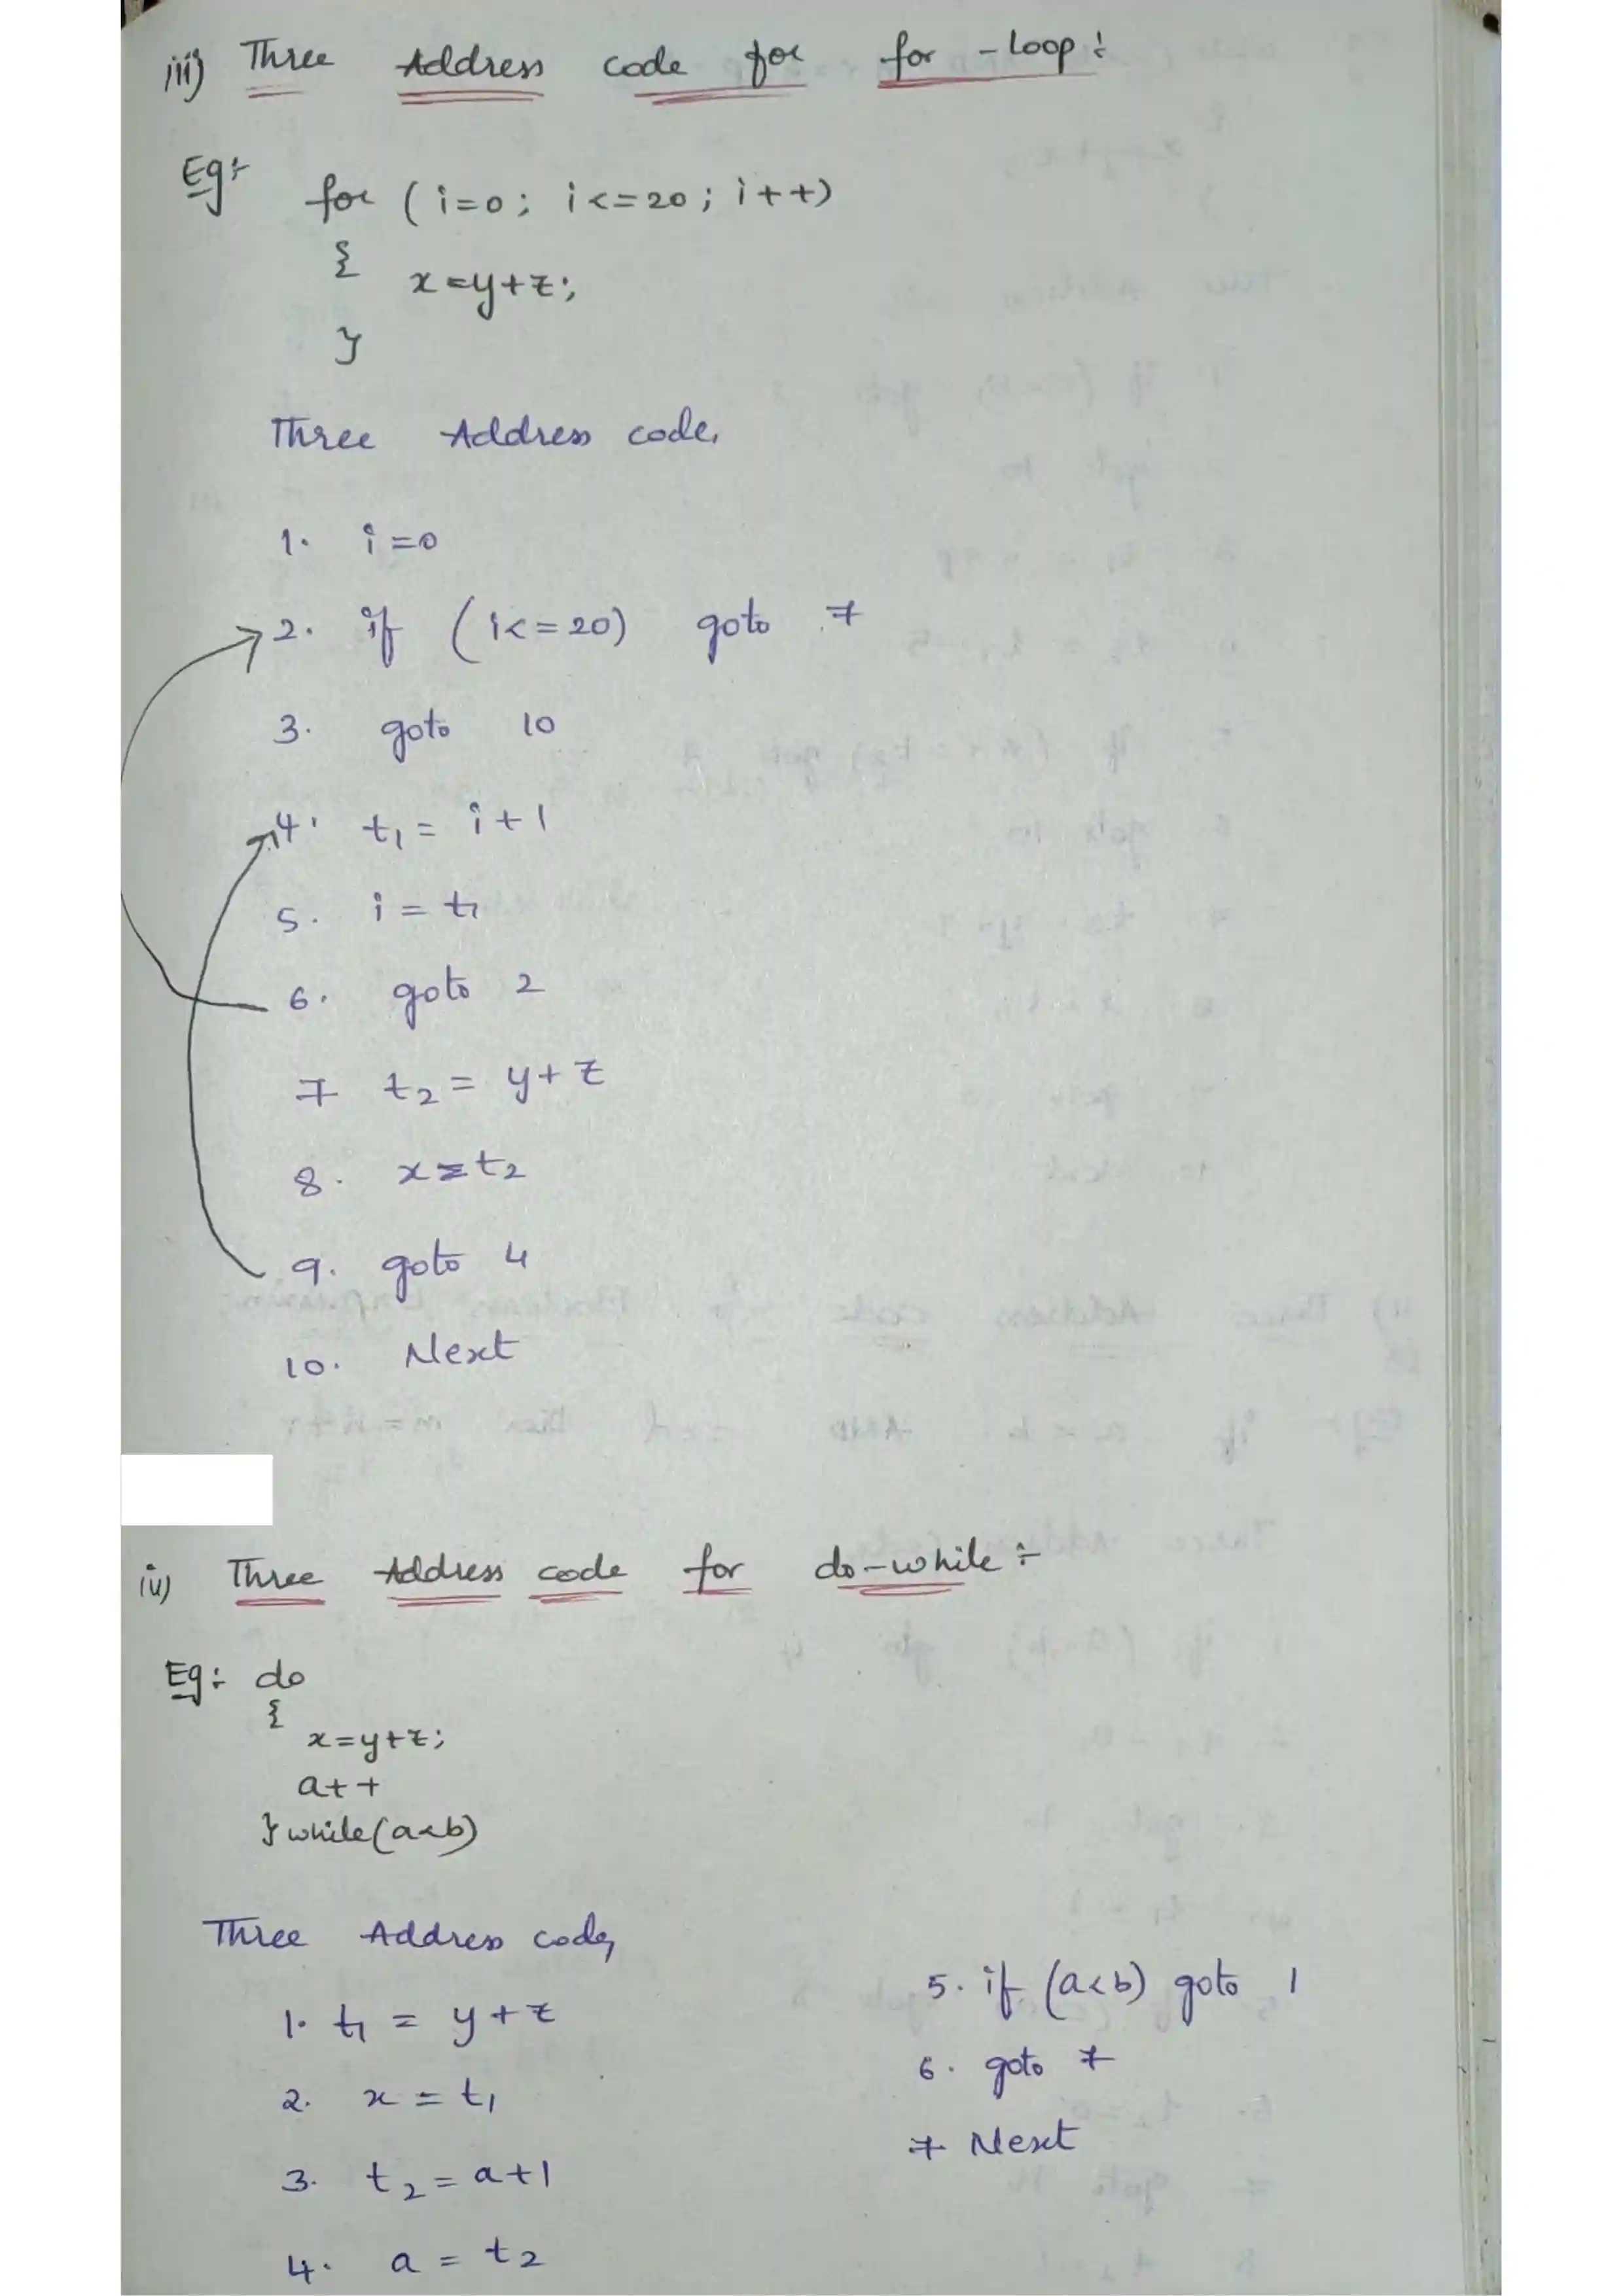 iii) Three Address code for for-loop:
Eg:-
for (i=0; i<=20; i++)
{
x=y+z;
}
Three Address code,
1. i=0
2. if (i<=20) goto 7
3. goto 10
4. t1 = i+1
5. i = t1
6. goto 2
7 t2 = y+z
8. x=t2
9. goto 4
10. Next
iv) Three Address code for do-while:-
Eg:- do
{
x=y+z;
a++
} while(a<b)
Three Address code,
1. t1 = y+z
2. x = t1
3. t2 = a+1
4. a = t2
5. if (a<b) goto 1
6. goto 7
7 Next